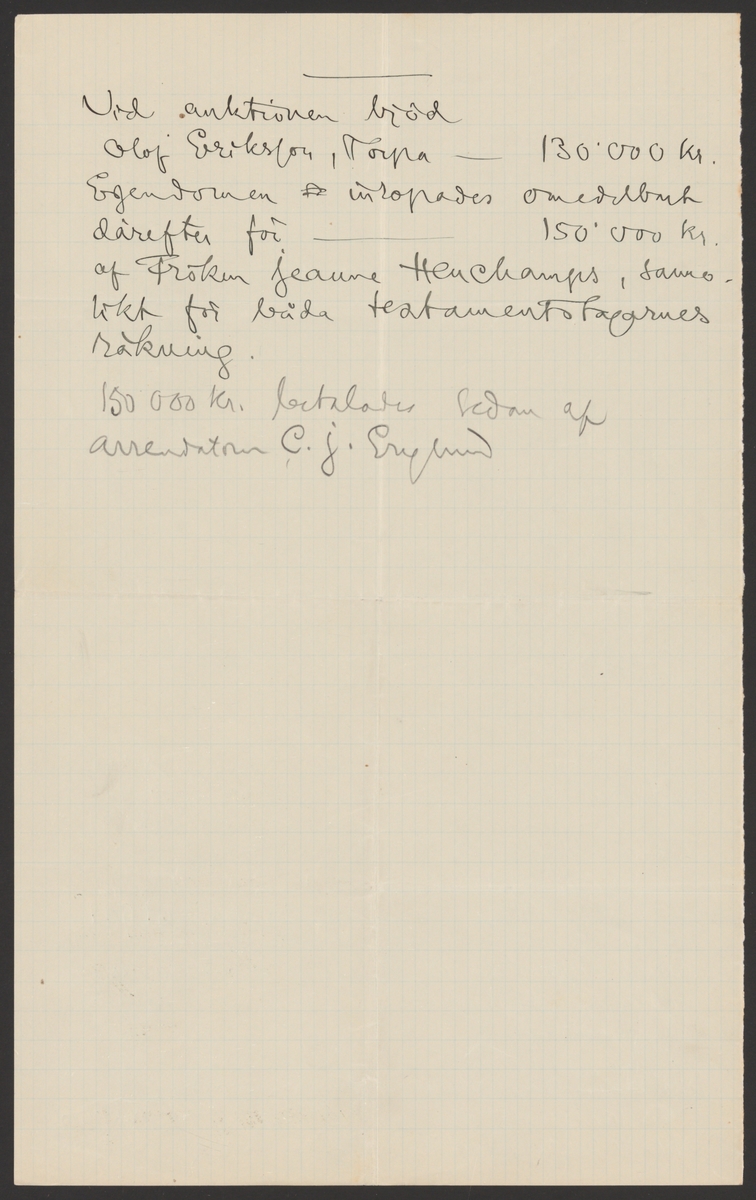 Vid auktionen bjöd
Olof Eriksson, Torpa — 130'000 kr.
Egendomen inropades omedelbart
därefter för — 150'000 kr.
af Fröken Jeanne Henchamps, sanno-
likt för båda testamentstagarnes
räkning.
150'000 kr. betalades sedan af
arrendatorn C. J. Englund